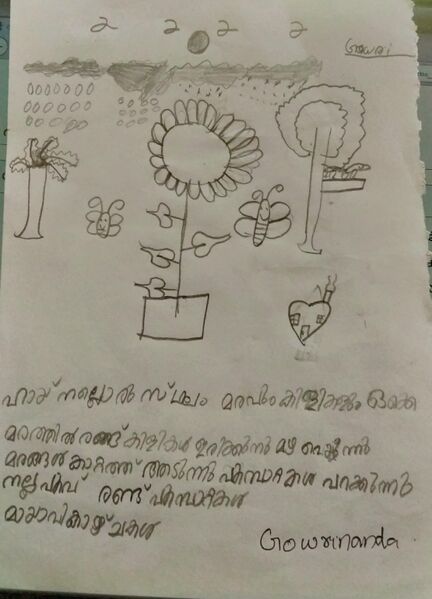 Gowri
ഹായ് നല്ലൊരു സ്ഥലം മരവും കിളികളും ഒക്കെ
മരത്തിൽ രണ്ട് കിളികൾ ഇരിക്കുന്നു മഴ പെയ്യുന്നു
മരങ്ങൾ കാറ്റത്ത് ആടുന്നു പൂമ്പാറ്റകൾ പറക്കുന്നു
നല്ല പൂവ് രണ്ട് പൂമ്പാറ്റകൾ
മായാവികാഴ്ചകൾ
Gowrinanda